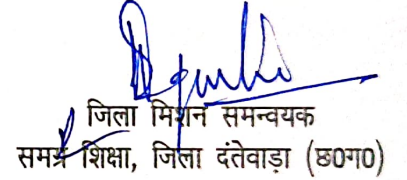 जिला मिशन समन्वयक
समग्र शिक्षा, जिला दंतेवाड़ा (छ0ग0)